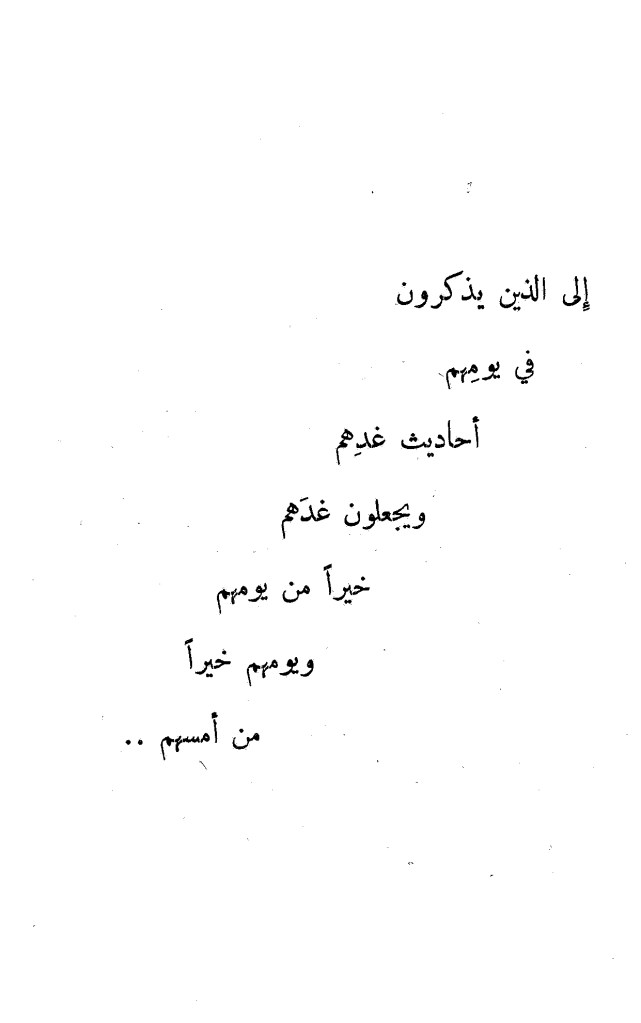 إلى الذين يذكرون
في يومِهم
أحاديث غدِهم
ويجعلون غدَهم
خيراً من يومهم
ويومهم خيراً
من أمسهم ..